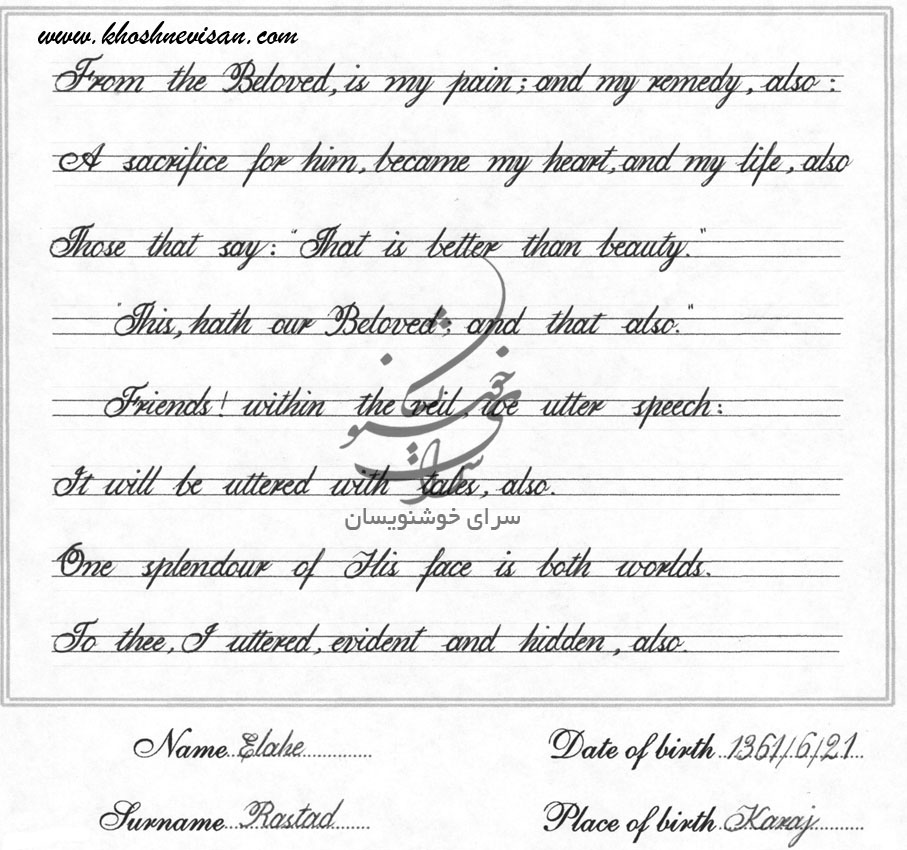 www.khoshnevisan.com
From the Beloved, is my pain; and my remedy, also:
A sacrifice for him, became my heart, and my life, also
Those that say: "That is better than beauty."
"This, hath our Beloved"; and that also."
Friends! within the veil, we utter speech:
It will be uttered with tales, also.
سرای خوشنویسان
One splendour of His face is both worlds.
To thee, I uttered, evident and hidden, also.
Name Elahe Date of birth 1361/6/21
Surname Rastad Place of birth Karaj